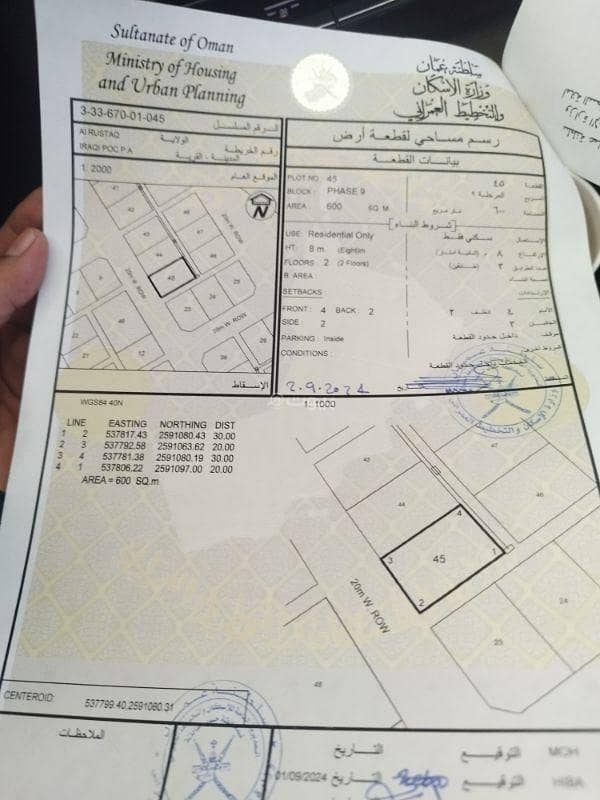 Sultanate of Oman
Ministry of Housing
and Urban Planning
سلطنة عمان
وزارة الإسكان
والتخطيط العمراني
3-33-670-01-045
الرقم المسلسل
Al RUSTAQ
الولاية
رقم الخريطة
IRAQI POC P A
المدينة - القرية
1: 2000
الموقع العام
N
41
42
43
44
45
46
47
23
24
25
26
20m W. ROW
20m W. ROW
20m W. ROW
الاسقاط
رسم مساحي لقطعة أرض
بيانات القطعة
PLOT NO: 45
٤٥
القطعة
BLOCK: PHASE 9
المرحلة ٩
المربع
AREA: 600 SQ M.
٦٠٠
متر مربع
المساحة
شروط البناء
USE: Residential Only
سكني فقط
الاستعمال
HT: 8 m. (Eight)m
٨
الارتفاع
FLOORS: 2 (2 Floors)
٢
B AREA:
SETBACKS
الارتدادات
FRONT: 4 BACK: 2
٢
خلف
٤
SIDE 2
٢
PARKING: Inside
داخل حدود القطعة
CONDITIONS:
داخل حدود القطعة
2.9.2024
WGS84 40N
1:1000
LINE EASTING NORTHING DIST
1 2 537817.43 2591080.43 30.00
2 3 537792.58 2591063.62 20.00
3 4 537781.38 2591080.19 30.00
4 1 537806.22 2591097.00 20.00
AREA = 600 SQ.m
43
47
44
46
4
3
45
1
2
20m W. ROW
24
23
48
CENTEROID: 537799.40,2591080.31
الملاحظات
التاريخ
التوقيع
MOH
01/09/2024
التاريخ
التوقيع
HIBA